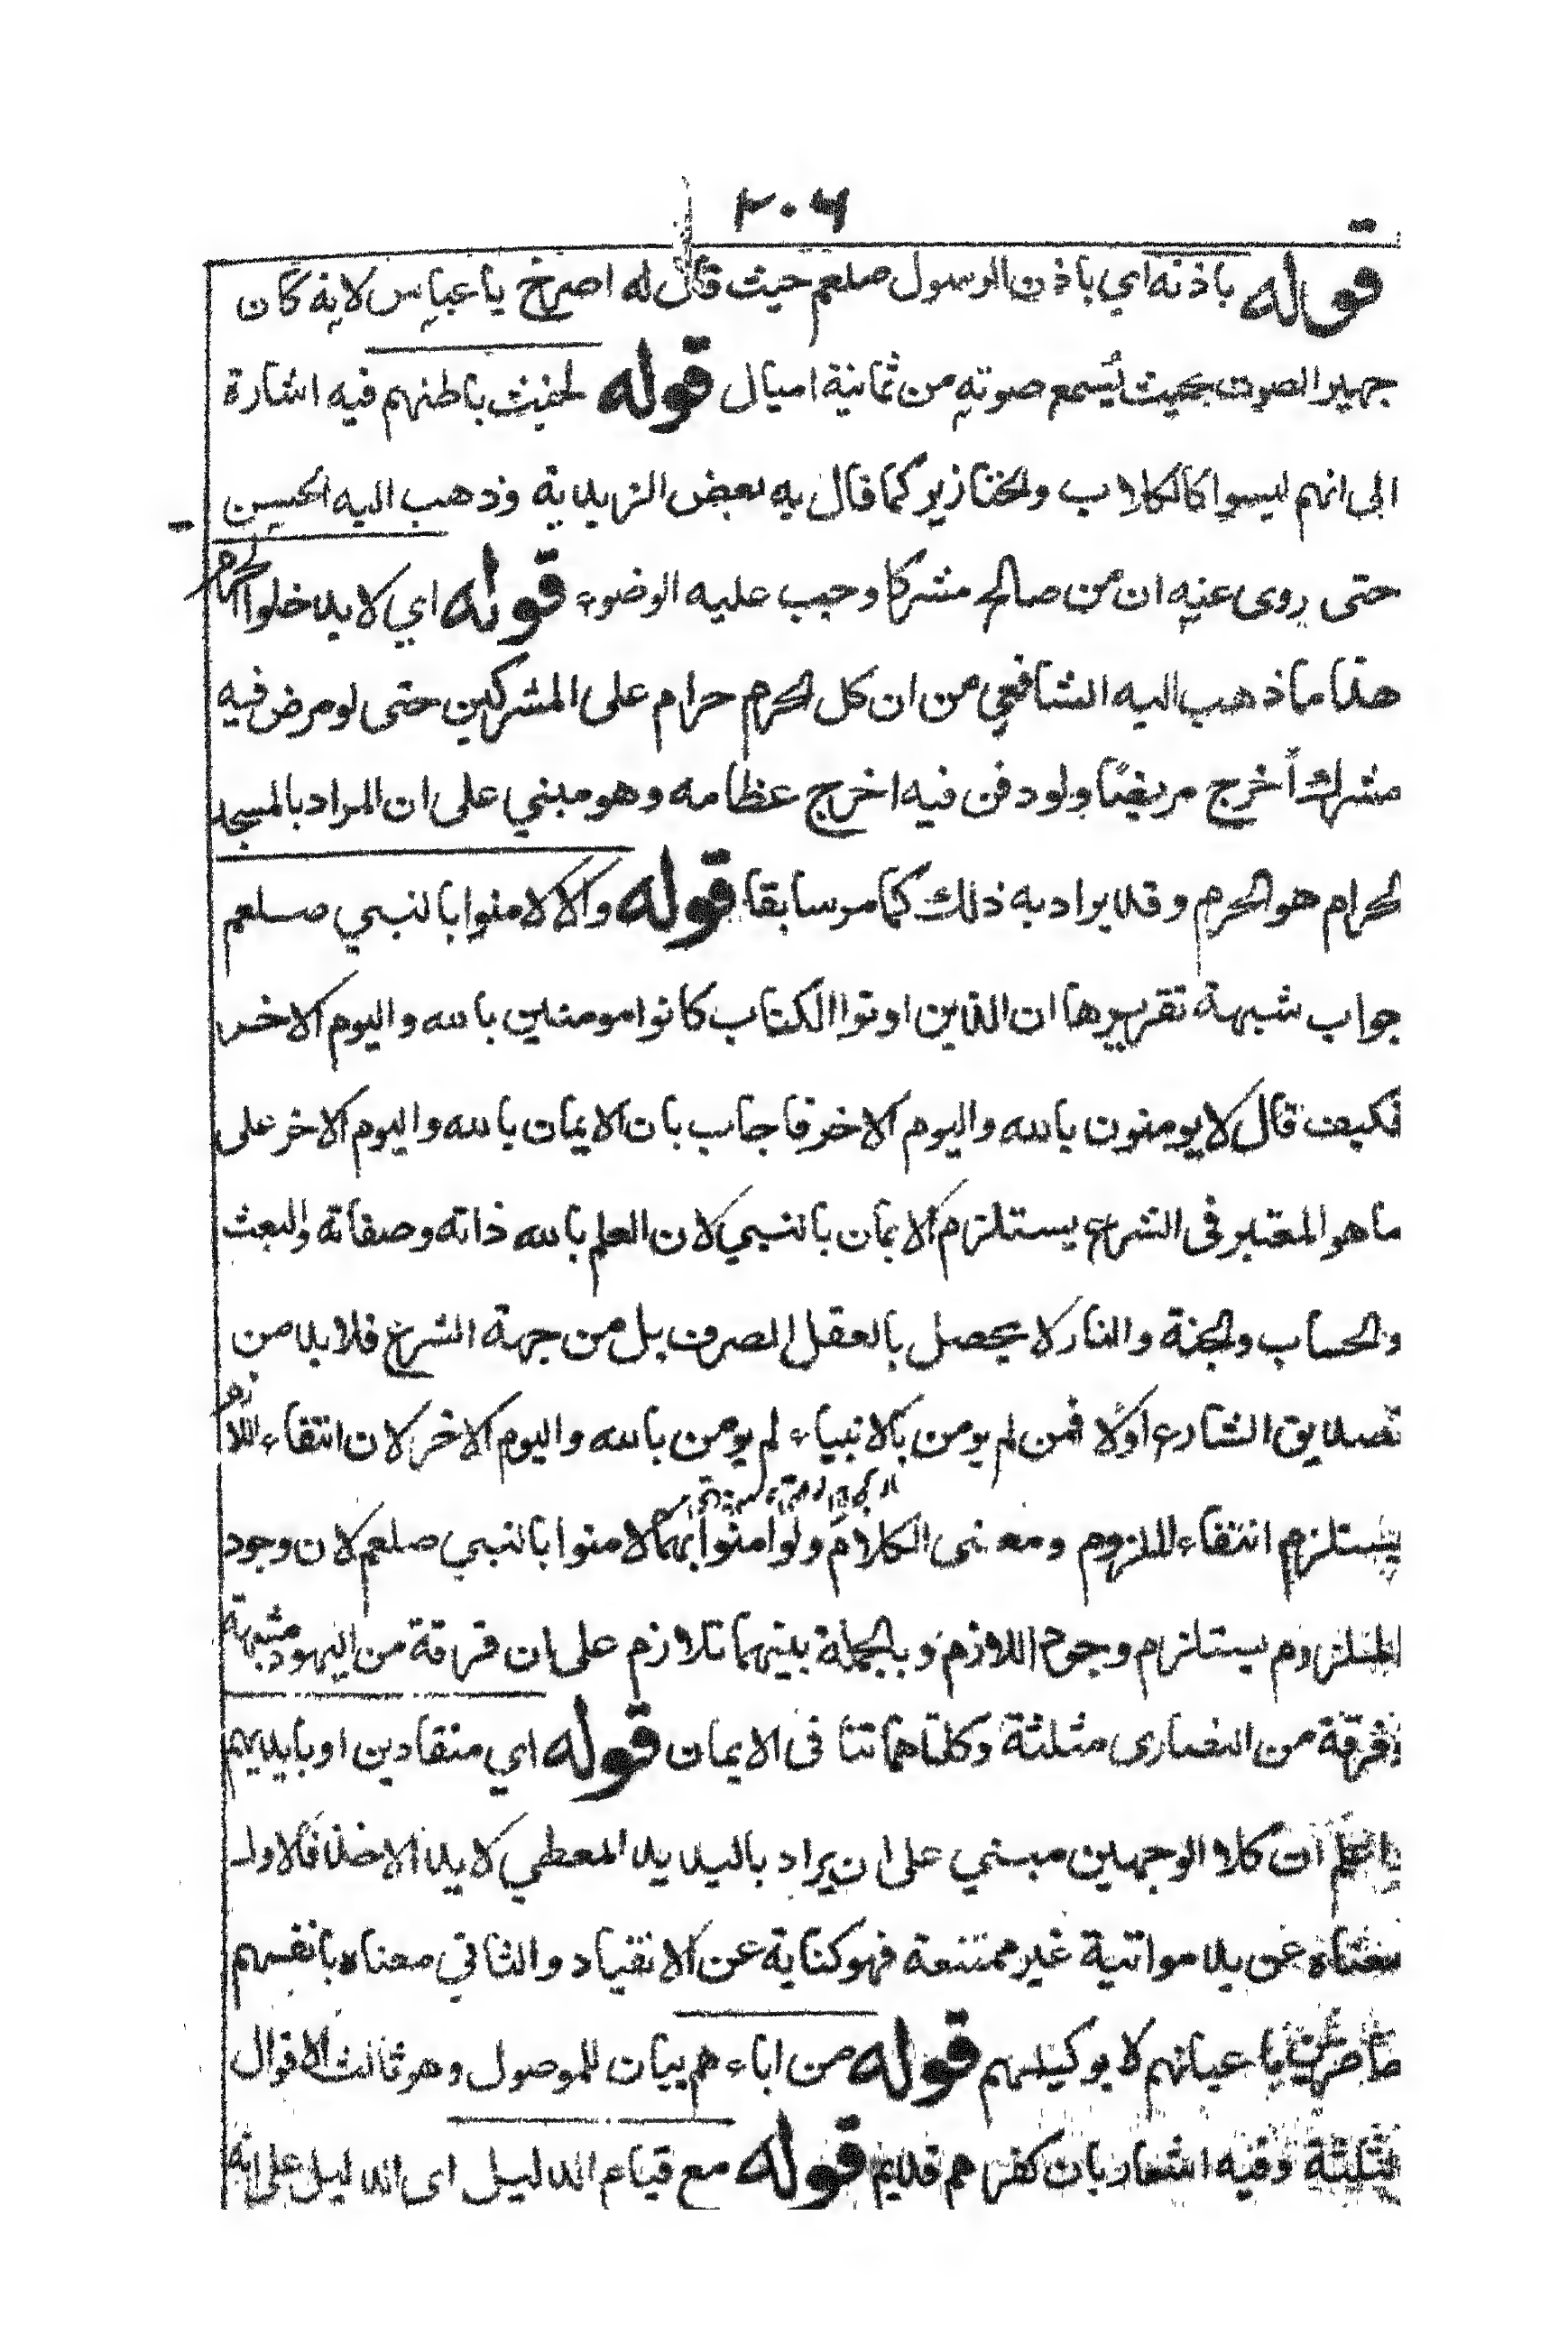 ٢٠٦
قوله باذنه اي باذن الرسول صلعم حيث قال له اصرخ يا عباس لانه كان
جهير الصوت بحيث يُسمع صوته من ثمانية اميال قوله لخبث باطنهم فيه اشارة
الى انهم ليسوا كالكلاب والخنازير كما قال به بعض الزيدية وذهب اليه الحسن
حتى روى عنه ان من صالح مشركا وجب عليه الوضوء قوله اي لا يدخلوا الحرم
هذا ما ذهب اليه الشافعي من ان كل الحرم حرام على المشركين حتى لو مرض فيه
مشرك اُخرج مريضًا ولو دفن فيه اخرج عظامه وهو مبني على ان المراد بالمسجد
الحرام هو الحرم وقد يراد به ذلك كما مر سابقا قوله والا لامنوا بالنبي صلعم
جواب شبهة تقريرها ان الذين اوتوا الكتاب كانوا مومنين بالله واليوم الاخر
فكيف قال لا يومنون بالله واليوم الاخر فاجاب بان الايمان بالله واليوم الاخر على
ما هو المعتبر فى الشرع يستلزم الايمان بالنبي لان العلم بالله ذاته وصفاته والبعث
والحساب والجنة والنار لا يحصل بالعقل الصرف بل من جهة الشرع فلا بد من
تصديق الشارع اولا فمن لم يومن بالانبياء لم يومن بالله واليوم الاخر لان انتفاء اللازم
يستلزم انتفاء الملزوم ومعنى الكلام ولو امنوا بهما لامنوا بالنبي صلعم لان وجود
الملزوم يستلزم وجود اللازم وبالجملة بينهما تلازم على ان فرقة من اليهود مشبهة
وفرقة من النصارى مثلثة وكلتاهما تنافى الايمان قوله اي منقادين او بايديهم
واعلم ان كلا الوجهين مبني على ان يراد باليد يد المعطي لا يد الاخذ فالاول
معناه عن يد مواتية غير ممتنعة فهو كناية عن الانقياد والثاني معناه بانفسهم
باعيانهم لا بوكيلهم قوله من اباءهم بيان للموصول وهو ثالث الاقوال
مثلثة وفيه اشعار بان كفرهم قديم قوله مع قيام الدليل اى الدليل على انه